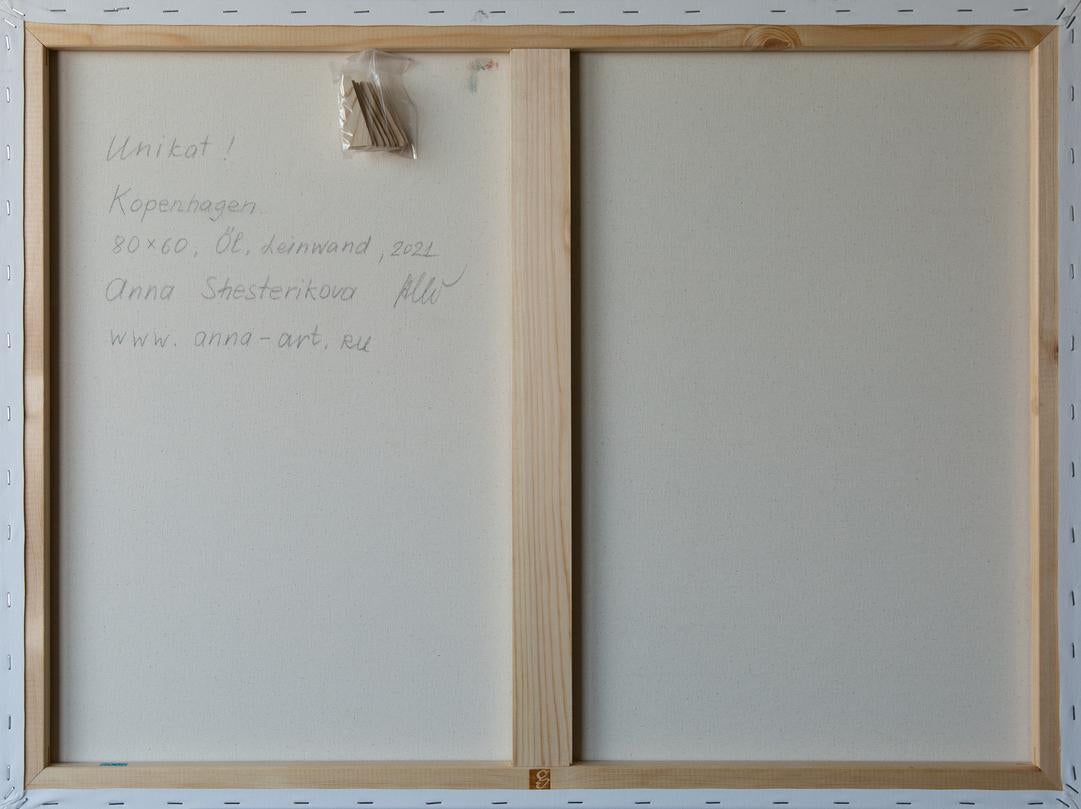 Unikat !
Kopenhagen
80×60, Öl, Leinwand, 2021
Anna Shesterikova
www. anna-art. RU